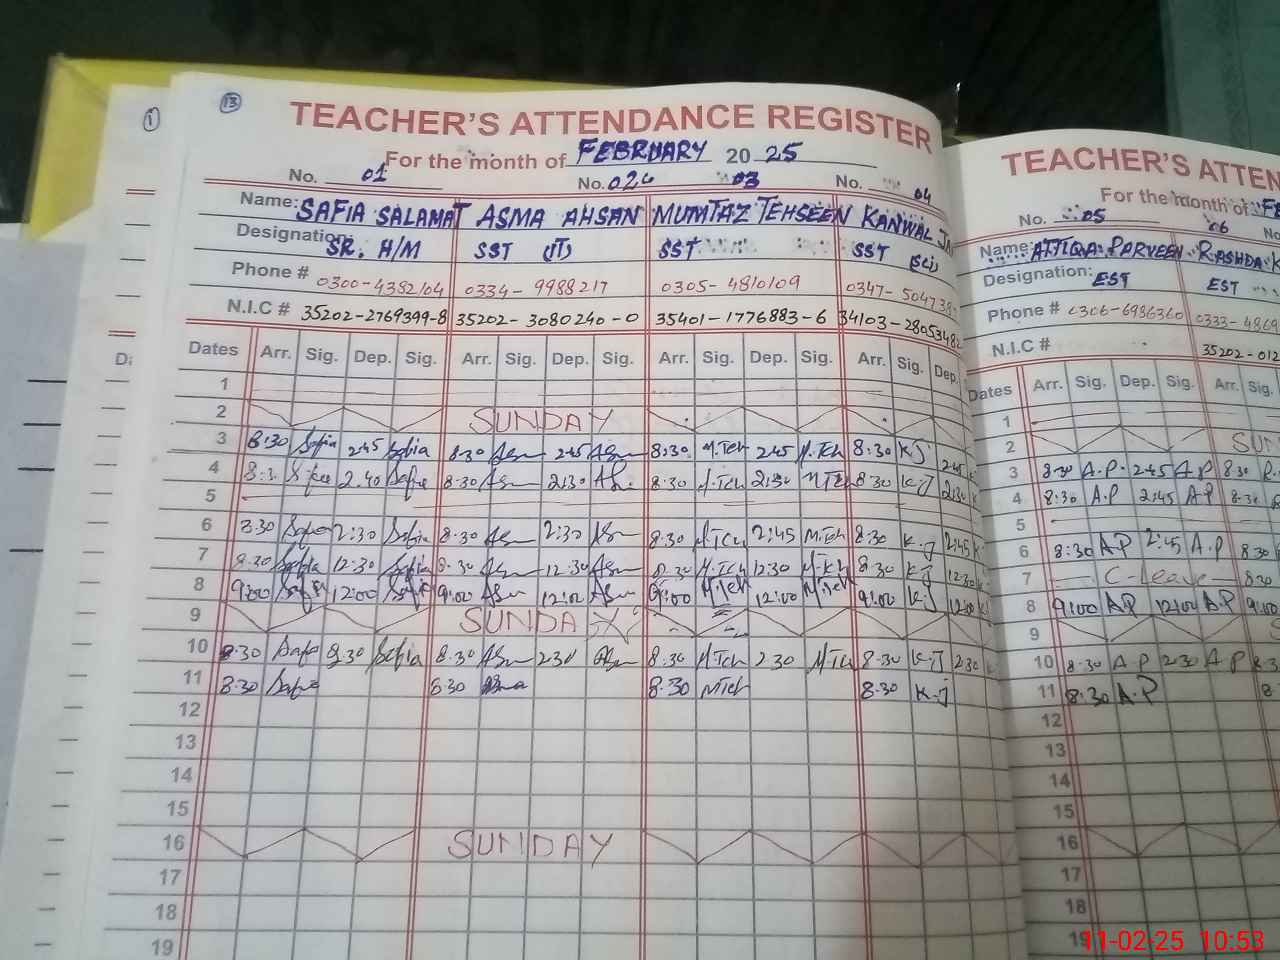 13
1
TEACHER'S ATTENDANCE REGISTER
For the month of FEBRUARY 2025
No. 01 No. 02 03 No. 04
Name: SAFIA SALAMAT ASMA AHSAN MUMTAZ TEHSEEN KANWAL
Designation: SR. H/M SST (IT) SST SST (Sci)
Phone # 0300-4392104 0334-9988217 0305-4810109 0347-50473
N.I.C # 35202-2769399-8 35202-3080240-0 35401-1776883-6 34103-28053482
Dates Arr. Sig. Dep. Sig. Arr. Sig. Dep. Sig. Arr. Sig. Dep. Sig. Arr. Sig. Dep.
1
2 SUNDAY
3 8:30 Safia 2:45 Safia 8:30 Asm 2:45 Asm 8:30 M.Teh 2:45 M.Teh 8:30 K.J 2:45
4 8:30 Safia 2:40 Safia 8:30 Asm 2:30 Asm 8:30 M.Teh 2:30 M.Teh 8:30 K.J 2:30
5
6 8:30 Safia 2:30 Safia 8:30 Asm 2:30 Asm 8:30 M.Teh 2:45 M.Teh 8:30 K.J 2:45
7 8:30 Safia 12:30 Safia 8:30 Asm 12:30 Asm 8:30 M.Teh 12:30 M.Teh 8:30 K.J 12:30
8 9:00 Safia 12:00 Safia 9:00 Asm 12:00 Asm 9:00 M.Teh 12:00 M.Teh 9:00 K.J 12:00
9 SUNDAY
10 8:30 Safia 2:30 Safia 8:30 Asm 2:30 Asm 8:30 M.Teh 2:30 M.Teh 8:30 K.J 2:30
11 8:30 Safia 8:30 8:30 M.Teh 8:30 K.J
12
13
14
15
16 SUNDAY
17
18
19
TEACHER'S ATTEN
For the month of FE
No. 05 06 No
Name: ATTIQA PARVEEN RASHDA K
Designation: EST EST
Phone # 0306-6986360 0333-4869
N.I.C # 35202-012
Dates Arr. Sig. Dep. Sig. Arr. Sig.
1
2 SUN
3 8:30 A.P. 2:45 A.P 8:30 R
4 8:30 A.P 2:45 A.P 8:30
5
6 8:30 A.P 2:45 A.P 8:30
7 C-Leave 8:30
8 9:00 A.P 12:00 A.P 9:00
9 S
10 8:30 A.P 2:30 A.P 8:3
11 8:30 A.P 8:
12
13
14
15
16
17
18
19
11-02-25 10:53